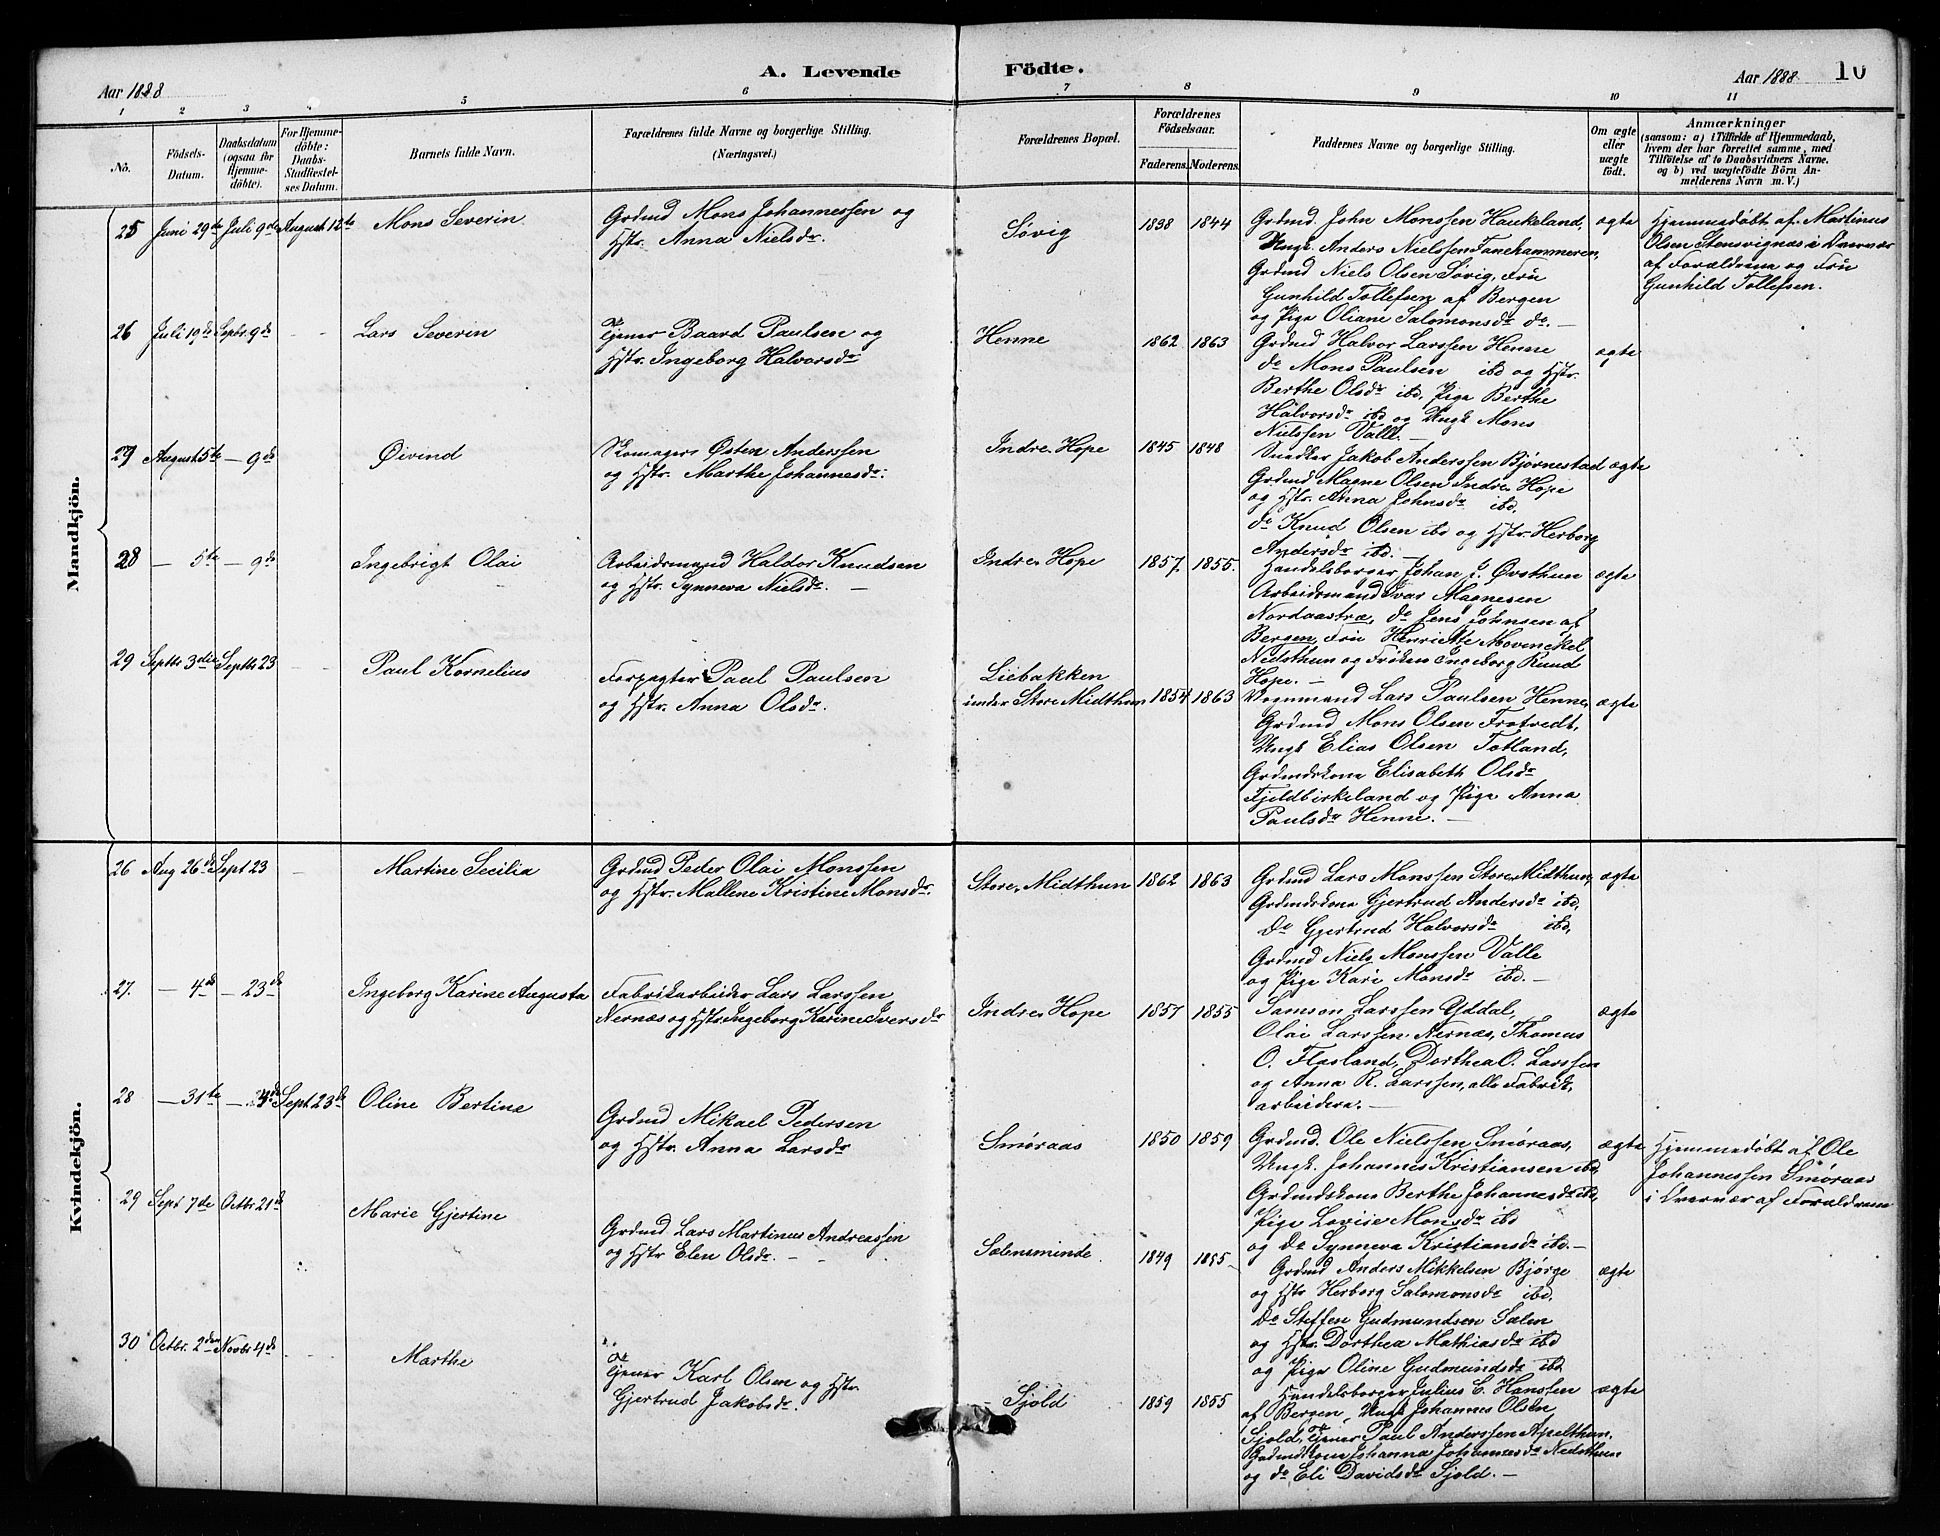 A. Levende Födte.
Aar 1888
Aar 1888 10
1 2 3 4 5 6 7 8 9 10 11
No.
Födsels-Datum.
Daabsdatum (ogsaa for Hjemmedöbte).
For Hjemmedöbte: Daabs-Stadfæstelses Datum.
Barnets fulde Navn.
Forældrenes fulde Navne og borgerlige Stilling.
(Næringsvei.)
Forældrenes Bopæl.
Forældrenes Födselsaar.
Faderens. Moderens.
Faddernes Navne og borgerlige Stilling.
Om ægte eller uægte födt.
Anmærkninger
(saasom: a) i Tilfælde af Hjemmedaab, hvem der har forrettet samme, med Tilföielse af to Daabsvidners Navne, og b) ved uægtefödte Börn Anmelderens Navn m. V.)
Mandkjön.
25 Juni 29de Juli 9de August 12te Mons Severin
Grdmd Mons Johannessen og
Hstr. Anna Nielsdr.
Søvig 1838 1844
Grdmd John Monssen Haukeland,
Ungk. Anders Nielssen Fanehammeren,
Grdmd Niels Olsen Søvig, Fru
Gunhild Tollefsen af Bergen
og Pige Oliane Salomonsdr do. —
ægte
Hjemmedøbt af Martinus
Olsen Stensvignæs i Overvær
af Forældrene og Fru
Gunhild Tollefsen.
26 Juli 19de Septbr. 9de - - Lars Severin
Gjener Baard Paulsen og
Hstr. Ingeborg Halvorsdr
Henne 1862 1863
Grdmd Halvor Larssen Henne
do Mons Paulsen ibd og Hstr.
Berthe Olsdr ibd, Pige Berthe
Halvorsdr ibd og Ungk Mons
Nielssen Valle. —
ægte
27 August 5te — 9de Øivind
Skomager Østen Anderssen
og Hstr. Marthe Johannesdr.
Indre Hope 1845 1848
Snedker Jakob Anderssen Bjørnestad
Grdmd Magne Olsen Indre Hope
og Hstr. Anna Johnsdr ibd,
do Knud Olsen ibd og Hstr. Herborg
Andersdr ibd. —
ægte
28 — 5te — 9de Ingebrigt Olai
Arbeidsmand Haldor Knudsen
og Hstr. Synneva Nielsdr. —
Indre Hope 1857. 1855.
Handelsborger Johan L. Øvsthun
Arbeidsmand Ivar Magnesen
Nordaastræ, do Jens Johnsen af
Bergen, Fru Henriette Movinckel
Nedsthun og Frøken Ingeborg Rund
Hope. —
ægte
29 Septbr 3die Septbr 23 Paul Kornelius
Forpagter Paul Paulsen
og Hstr. Anna Olsdr.
Liebakken
under Store Midthun 1854 1863
Vognmand Lars Paulsen Henne,
Grdmd Mons Olsen Frotvedt,
Ungk Elias Olsen Totland,
Grdmdskone Elisabeth Olsdr
Fjeldbirkeland og Pige Anna
Paulsdr Henne. —
ægte
Kvindekjön.
26 Aug 26de Sept 23 - Martine Secilia
Grdmd Peder Olai Monssen
og Hstr. Mallene Kristine Monsdr.
Store Midthun 1862 1863
Grdmd Lars Monssen Store Midthun,
Grdmdskone Gjertrud Andersdr ibd,
do Gjertrud Halvorsdr ibd,
Grdmd Niels Monssen Valle
og Pige Kari Monsdr ibd. —
ægte
27. — 4de — 23de Ingeborg Karine Augusta
Fabrikarbeider Lars Larssen
Nernæs og Hstr Ingeborg Karine Iversdr
Indre Hope 1857 1855
Samson Larssen Yddal,
Olai Larssen Nernæs, Thomas
O. Flasland, Dorthea O. Larssen
og Anna R. Larssen, alle Fabrik-
arbeidere. —
ægte
28 — 31te Sept 23de Oline Bertine
Grdmd Mikael Pedersen
og Hstr. Anna Larsdr
Smøraas 1850 1859
Grdmd. Ole Nielssen Smøraas,
Ungk. Johannes Kristiansen ibd,
Grdmdskone Berthe Johannesdr ibd,
Pige Lovise Monsdr ibd
og do Synneva Kristiansdr ibd. —
ægte
Hjemmedøbt af Ole
Johannessen Smøraas
i Overvær af Forældrene
29 Sept 7de Octbr. 21de Marie Gjertine
Grdmd Lars Martinus Andreassen
og Hstr Elen Olsdr. —
Sælensminde 1849 1855
Grdmd Anders Mikkelsen Bjørge
og Hstr Herborg Salomonsdr ibd,
do Steffen Gudmundsen Sælen
og Hstr. Dorthea Mathiasdr ibd
og Pige Oline Gudmundsdr ibd
ægte
30 Octbr. 2den Novbr 4de - - Marthe
Gjener Karl Olsen og Hstr
Gjertrud Jakobsdr.
Sjold 1859 1855
Handelsborger Julius C. Hanssen
af Bergen, Ungk Johannes Olsen
Sjold, Gjener Paul Anderssen Apelthun,
Grdmdskone Johanna Johannesdr Nedsthun
og do Eli Davidsdr Sjold. —
ægte